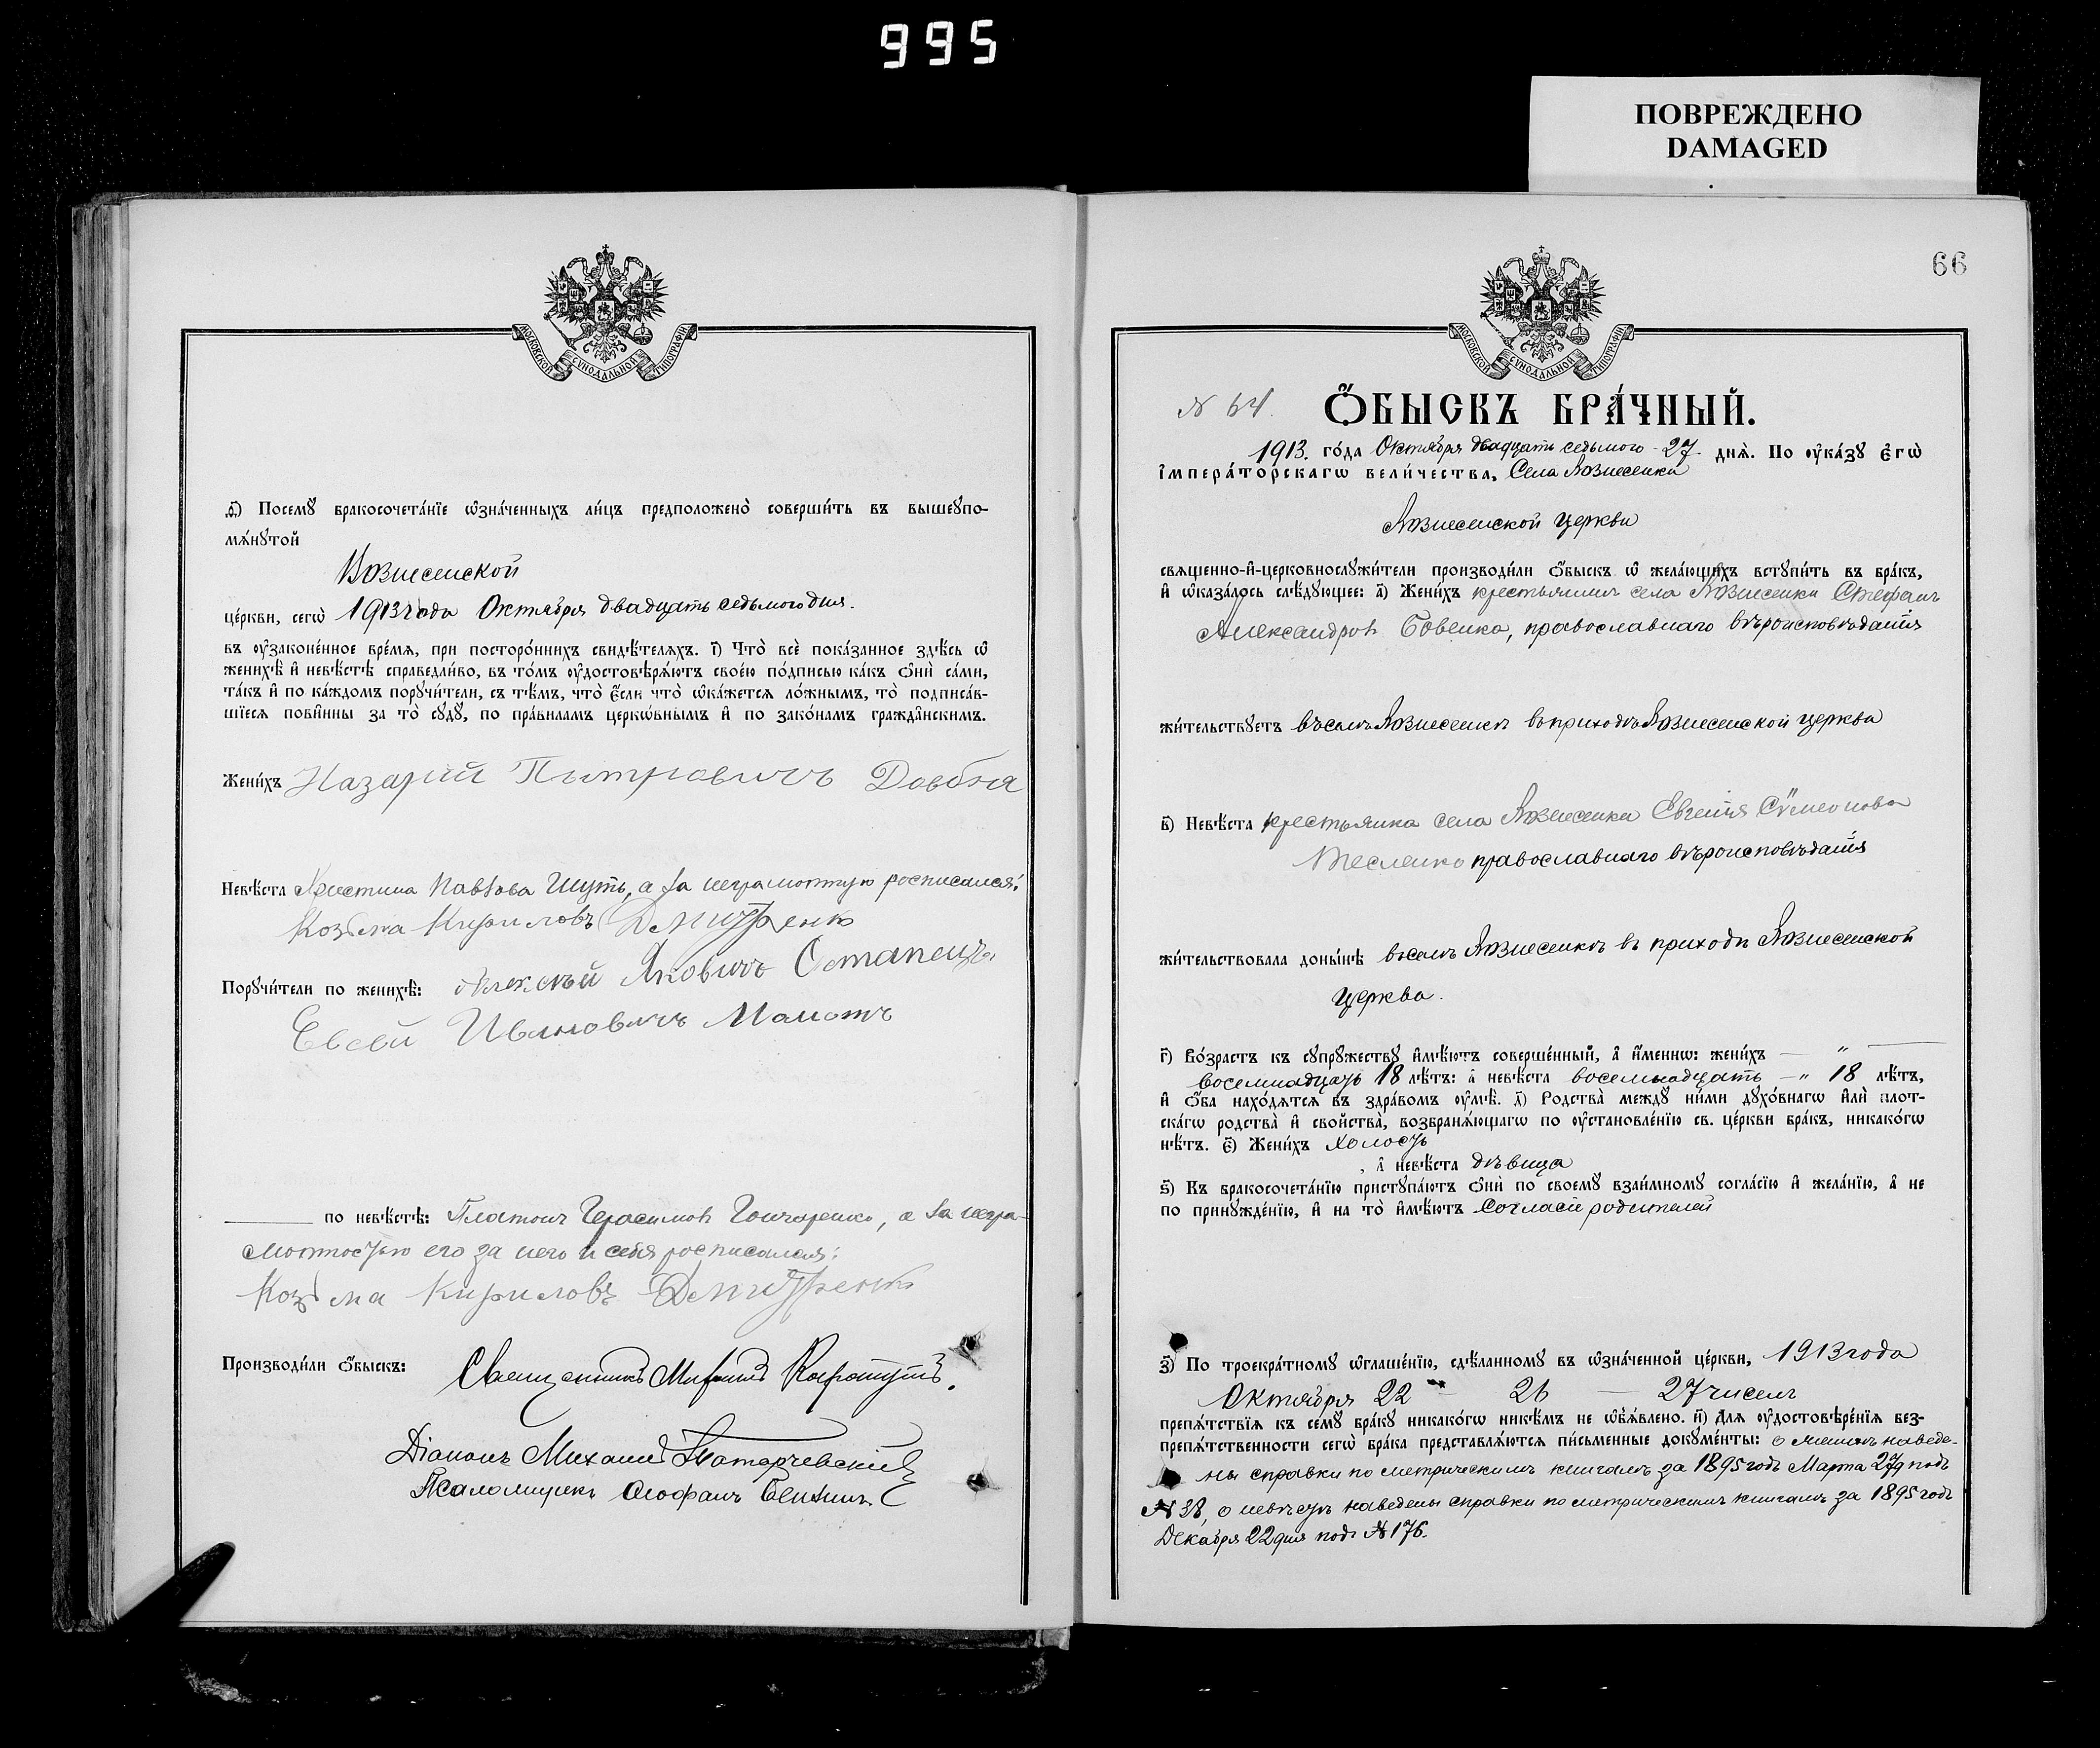 995
ПОВРЕЖДЕНО
DAMAGED
МОСКОВСКОЙ СѴНОДАЛЬНОЙ ТИПОГРАФІИ
ѳ҃) Посемꙋ бракосочета́нїе ѡ҆зна́ченныхъ ли́цъ предположено̀ соверши́ть въ вышеꙋпо-
мѧ́нꙋтой
Вознесенской
це́ркви, сегѡ̀ 1913 года Октября двадцать седьмого дня.
въ ᲂу҆законе́нное вре́мѧ, при посторо́ннихъ свидѣ́телѧхъ. і҃) Что̀ всѐ пока́занное здѣ́сь ѡ҆
женихѣ̀ и҆ невѣ́стѣ справедли́во, въ то́мъ ᲂу҆достовѣрѧ́ютъ свое́ю по́дписью ка́къ ѻ҆нѝ са́ми,
та́къ и҆ по ка́ждомъ порꙋчи́тели, съ тѣ́мъ, что̀ є҆́сли что̀ ѡ҆ка́жетсѧ ло́жнымъ, то̀ подписа́в-
шїесѧ пови́нны за то̀ сꙋдꙋ̀, по пра́виламъ церко́внымъ и҆ по зако́намъ гражда́нскимъ.
Жени́хъ Назарій Питровичъ Довбня
Невѣ́ста Христина Павлова Шуть, а за неграмотную росписался:
Козма Кириловъ Дмитренко
Порꙋчи́тели по женихѣ̀: Алексѣй Яковичъ Остапецъ
Евсей Ивановичъ Мамотъ
по невѣ́стѣ: Платонъ Герасимовъ Гончаренко, а за негра-
мотностью его за него и себя росписался:
Козма Кириловъ Дмитренко
Производи́ли ѻ҆́быскъ: Священникъ
Діаконъ Михаилъ
Псаломщикъ Ѳеофанъ
66
МОСКОВСКОЙ СѴНОДАЛЬНОЙ ТИПОГРАФІИ
N 64. Ѻ҆́БЫСКЪ БРА́ЧНЫЙ.
1913. го́да Октября двадцать седьмого - 27 - днѧ̀. По ᲂу҆ка́зꙋ є҆гѡ̀
і҆мпера́торскагѡ вели́чества, Села Вознесенки
Вознесенской церкви
свѧщенно-и҆-церковнослꙋжи́тели производи́ли ѻ҆́быскъ ѡ҆ жела́ющихъ встꙋпи́ть въ бра́къ,
и҆ ѡ҆каза́лось слѣ́дꙋющее: а҃) Жени́хъ крестьянинъ села Вознесенки Стефанъ
Александровъ Бовенко, православнаго вѣроисповѣданія
жи́тельствꙋетъ въ селѣ Вознесенкѣ въ приходѣ Вознесенской церкви
в҃) Невѣ́ста крестьянка села Вознесенки Евгенія Сѵмеонова
Тесленко православнаго вѣроисповѣданія
жи́тельствовала доны́нѣ въ селѣ Вознесенкѣ въ приходѣ Вознесенской
церкви.
г҃) Во́зрастъ къ сꙋпрꙋ́жествꙋ и҆мѣ́ютъ соверше́нный, а҆ и҆́меннѡ: жени́хъ — " —
восемнадцать 18 лѣ́тъ: а҆ невѣ́ста восемнадцать — " 18 лѣ́тъ,
и҆ ѻ҆́ба нахо́дѧтсѧ въ здра́вомъ ᲂу҆мѣ̀. д҃) Родства̀ междꙋ ни́ми дꙋхо́внагѡ и҆лѝ плот-
ска́гѡ родства̀ и҆ сво́йства̀, возбранѧ́ющагѡ по ᲂу҆становле́нїю св. це́ркви бра́къ, никако́гѡ
нѣ́тъ. є҃) Жени́хъ холостъ
, а҆ невѣ́ста дѣвица
ѕ҃) Къ бракосочета́нїю пристꙋпа́ютъ ѻ҆нѝ по своемꙋ̀ взаи́мномꙋ согла́сїю и҆ жела́нїю, а҆ не
по принꙋжде́нїю, и҆ на то̀ и҆мѣ́ютъ согласіе родителей
з҃) По троекра́тномꙋ ѡ҆глаше́нїю, сдѣ́ланномꙋ въ ѡ҆зна́ченной це́ркви, 1913 года
Октября 22 — 26 — 27 чиселъ
препѧ́тствїѧ къ семꙋ̀ бра́кꙋ никако́гѡ никѣ́мъ не ѡ҆б̾ѧ́влено. и҃) Длѧ ᲂу҆достовѣре́нїѧ без-
препѧ́тственности сегѡ̀ бра́ка представлѧ́ютсѧ пи́сьменные докꙋме́нты: о женихѣ наведе-
ны справки по метрическимъ книгамъ за 1895 годъ Марта 27 д подъ
N 38, о невѣстѣ наведены справки по метрическимъ книгамъ за 1895 годъ
Декабря 22 дня подъ N 176.